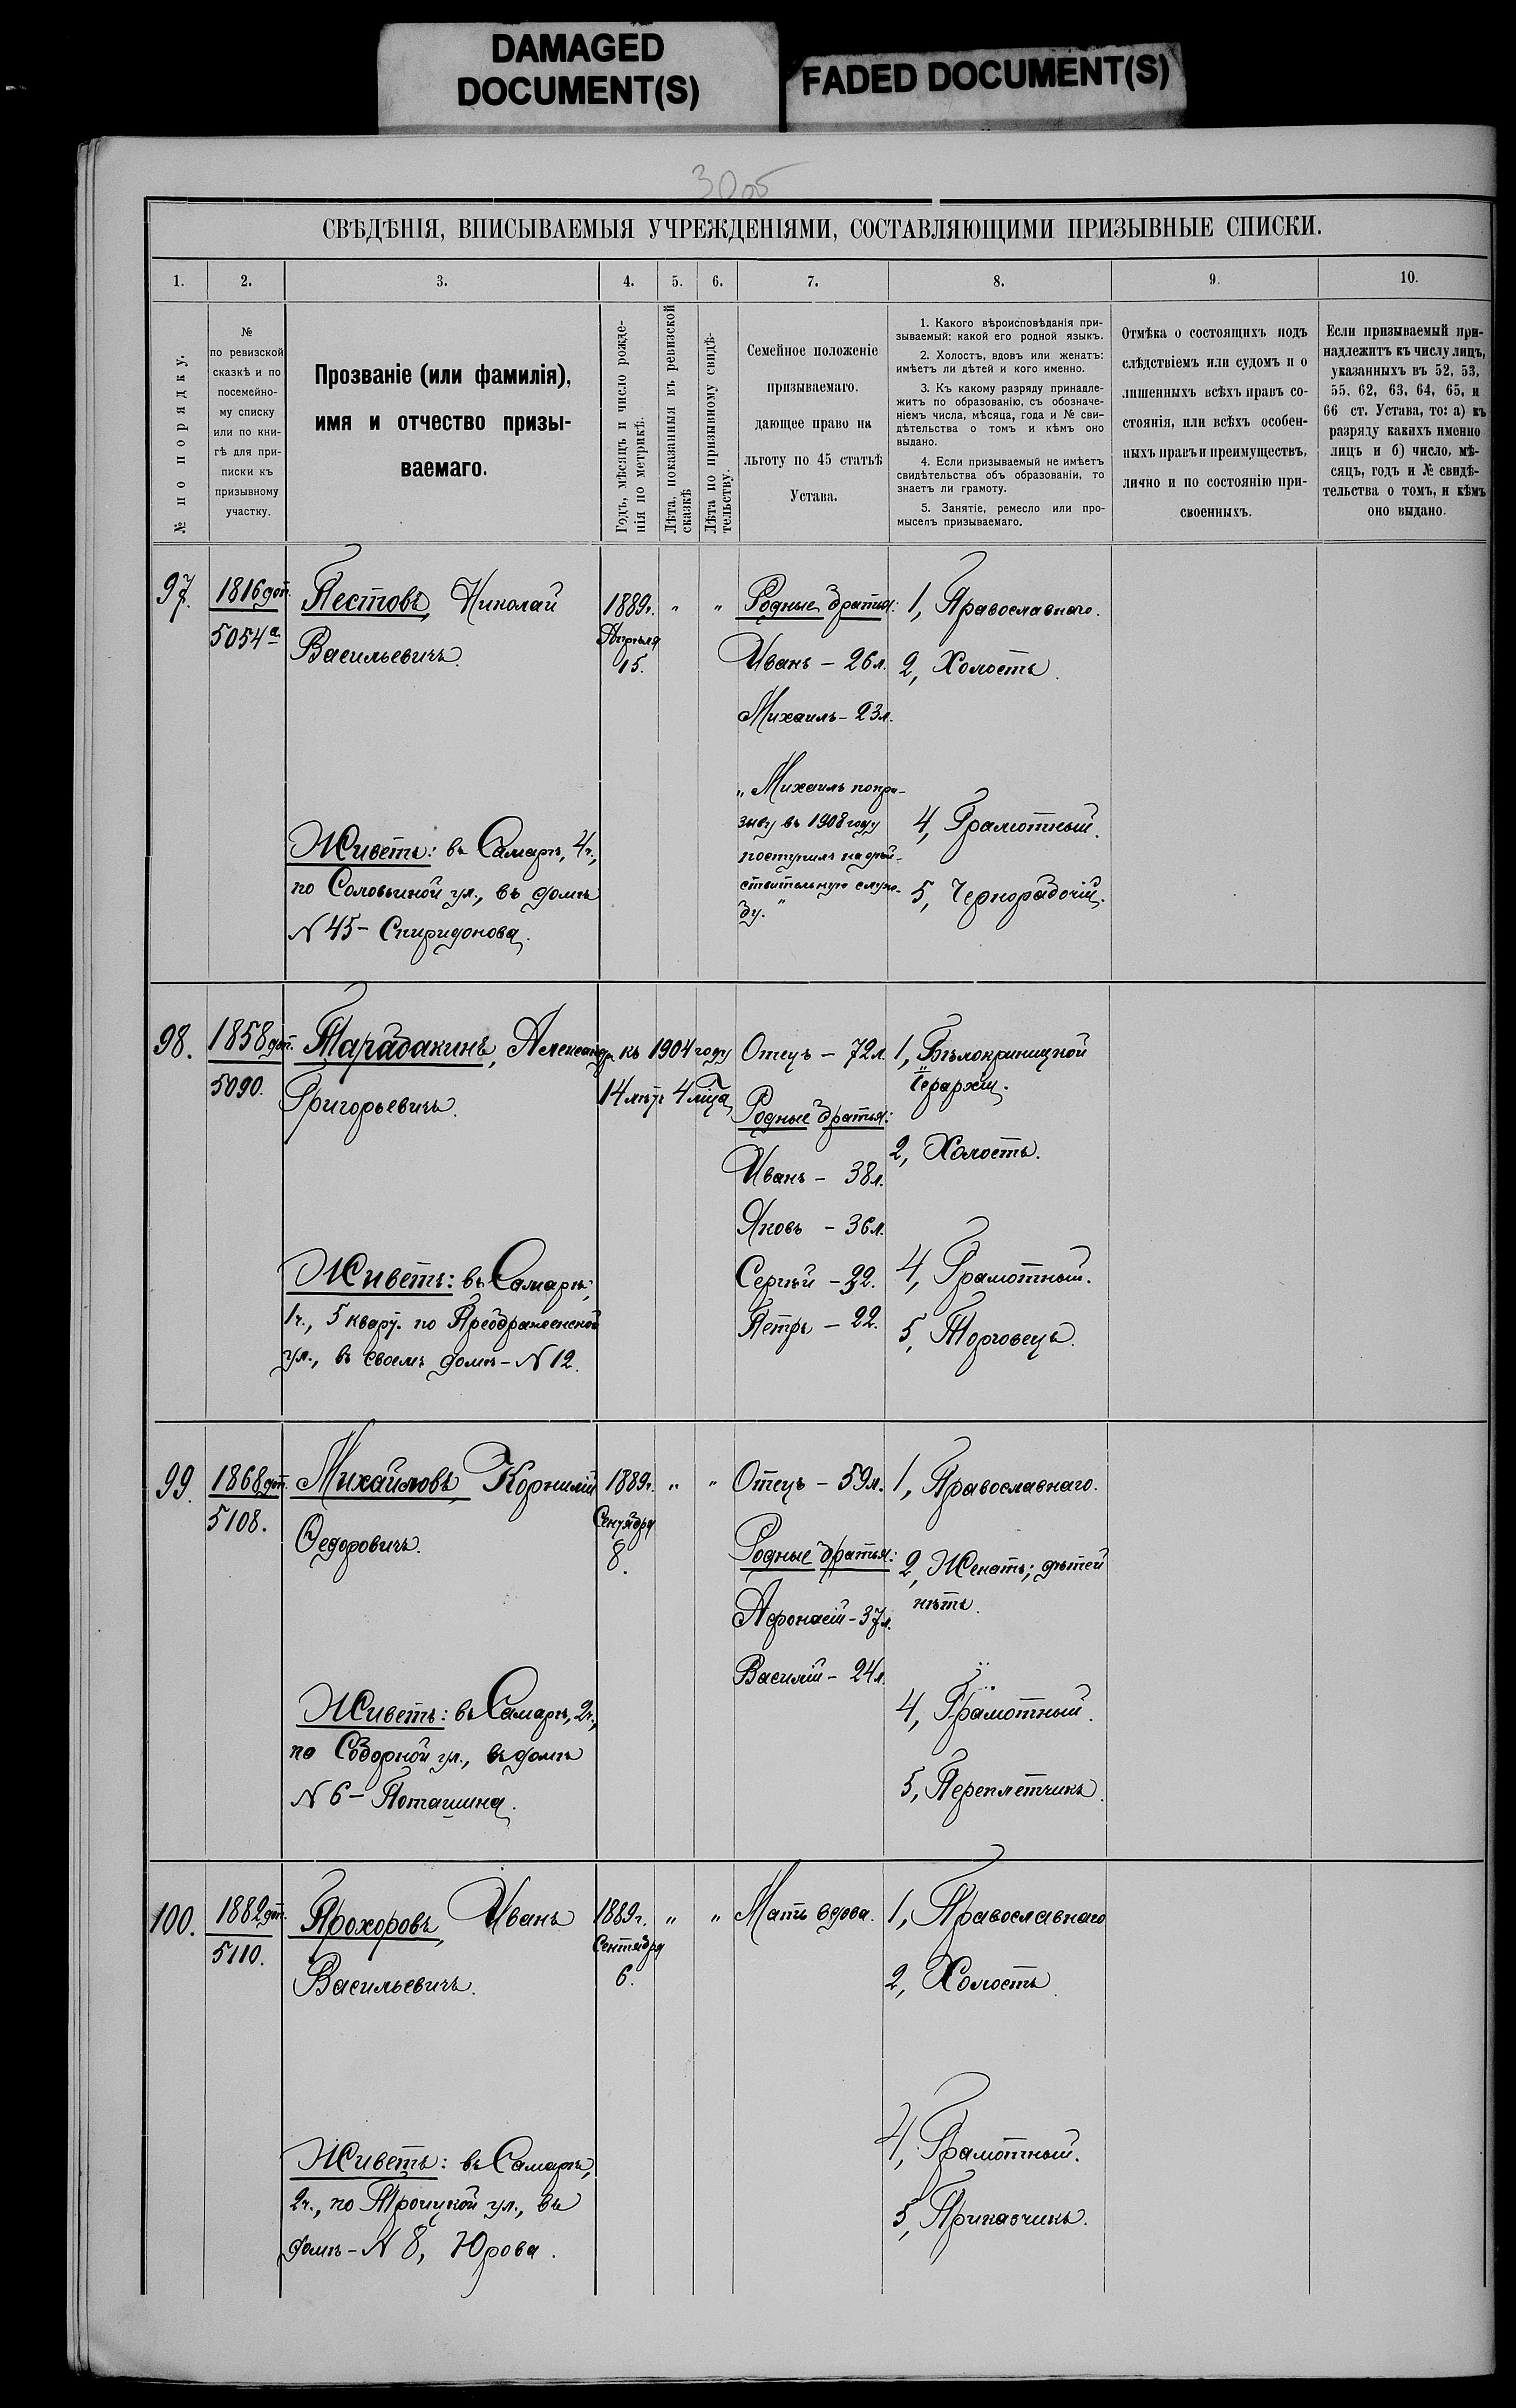 DAMAGED
DOCUMENT(S)
FADED DOCUMENT(S)
30об
СВѢДѢНІЯ, ВПИСЫВАЕМЫЯ УЧРЕЖДЕНІЯМИ, СОСТАВЛЯЮЩИМИ ПРИЗЫВНЫЕ СПИСКИ.
1.
2.
3.
4.
5.
6.
7.
8.
9.
10.
№ по порядку.
№
по ревизской
сказкѣ и по
посемейно-
му списку
или по кни-
гѣ для при-
писки къ
призывному
участку.
Прозваніе (или фамилія),
имя и отчество призы-
ваемаго.
Годъ, мѣсяцъ и число рожде-
нія по метрикѣ.
Лѣта, показанныя въ ревизской
сказкѣ
Лѣта по призывному свидѣ-
тельству.
Семейное положеніе
призываемаго,
дающее право на
льготу по 45 статьѣ
Устава.
1. Какого вѣроисповѣданія при-
зываемый: какой его родной языкъ.
2. Холостъ, вдовъ или женатъ:
имѣетъ ли дѣтей и кого именно.
3. Къ какому разряду принадле-
житъ по образованію, съ обозначе-
ніемъ числа, мѣсяца, года и № сви-
дѣтельства о томъ и кѣмъ оно
выдано.
4. Если призываемый не имѣетъ
свидѣтельства объ образованіи, то
знаетъ ли грамоту.
5. Занятіе, ремесло или про-
мыселъ призываемаго.
Отмѣка о состоящихъ подъ
слѣдствіемъ или судомъ и о
лишенныхъ всѣхъ правъ со-
стоянія, или всѣхъ особен-
ныхъ правъ и преимуществъ,
лично и по состоянію при-
своенныхъ.
Если призываемый при-
надлежитъ къ числу лицъ,
указанныхъ въ 52, 53,
55, 62, 63, 64, 65, и
66 ст. Устава, то: а) къ
разряду какихъ именно
лицъ и б) число, мѣ-
сяцъ, годъ и № свидѣ-
тельства о томъ, и кѣмъ
оно выдано.
97.
1816 доп.
5054а
Пестовъ, Николай
Васильевичъ.
Живетъ: въ Самарѣ, 4ч.,
по Соловьиной ул., въ домѣ
N 45 - Спиридонова.
1889г.
Апрѣля
15.
"
"
Родные братья:
Иванъ - 26л.
Михаилъ - 23л.
„Михаилъ по при-
зыву въ 1908 году
поступилъ на дѣй-
ствительную служ-
бу."
1, Православнаго.
2, Холостъ.
4, Грамотный.
5, Чернорабочій.
98.
1858 доп.
5090.
Тарабакинъ, Александр
Григорьевичъ.
Живетъ: въ Самарѣ,
1ч., 5 кварт. по Преображенской
ул., въ своемъ домѣ - N 12.
къ 1904 году
14 лѣтъ 4 м-ца
Отецъ - 72л.
Родные братья:
Иванъ - 38л.
Яковъ - 36л.
Сергѣй - 32.
Петръ - 22.
1, Бѣлокриницкой
іерархіи.
2, Холостъ.
4, Грамотный.
5, Торговецъ.
99.
1868 доп.
5108.
Михайловъ, Корнилій
Федоровичъ.
Живетъ: въ Самарѣ, 2ч.,
по Соборной ул., въ домѣ
N 6 - Поташина.
1889г.
Сентября
8.
"
"
Отецъ - 59л.
Родные братья:
Афонасій - 37л.
Василій - 24л.
1, Православнаго.
2, Женатъ; дѣтей
нѣтъ.
4, Грамотный.
5, Переплетчикъ.
100.
1882 доп.
5110.
Прохоровъ, Иванъ
Васильевичъ.
Живетъ: въ Самарѣ,
2ч., по Троицкой ул., въ
домѣ - N 8, Юрова.
1889г.
Сентября
6.
"
"
Мать вдова.
1, Православнаго
2, Холостъ.
4, Грамотный.
5, Приказчикъ.